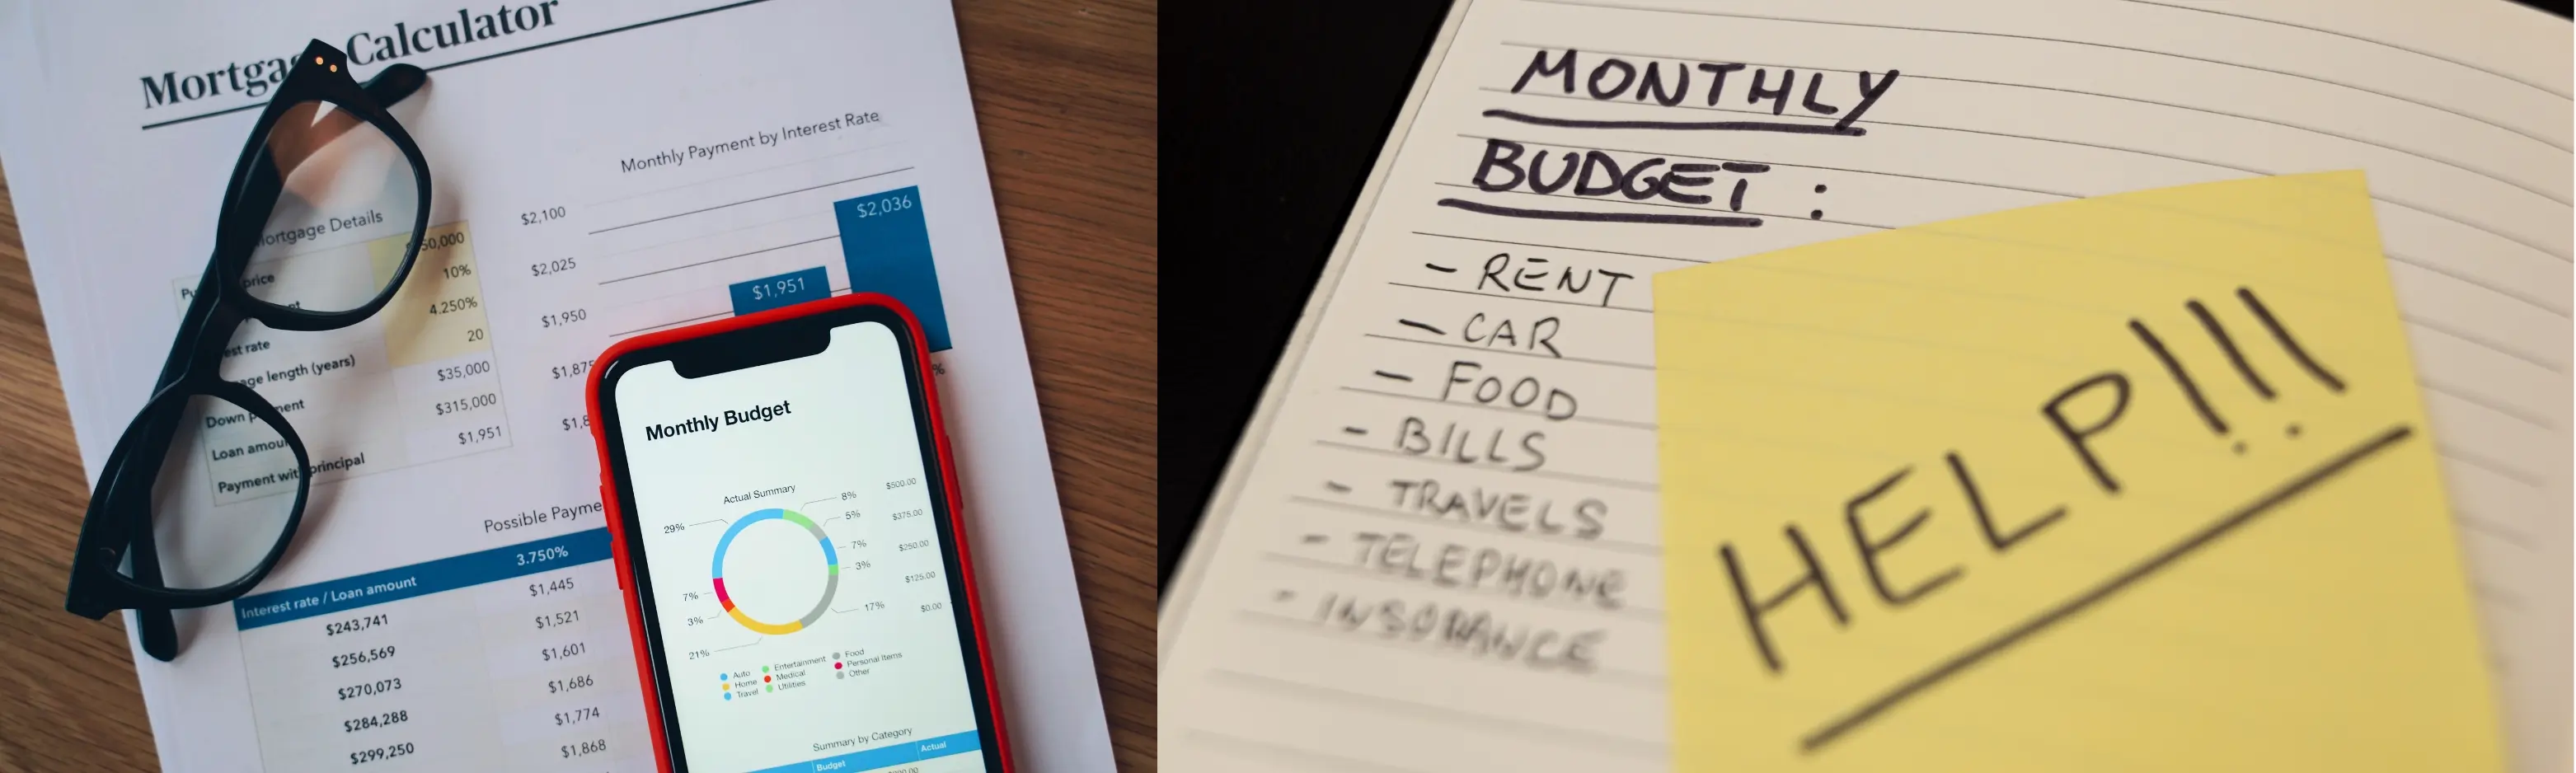 Mortgage Calculator
Monthly Payment by Interest Rate
$2,100
$2,025
$1,950
$2,036
$1,951
Mortgage Details
price
10%
4.250%
rate
20
length (years)
$35,000
Down
$315,000
Loan
$1,951
Payment principal
Possible
Interest rate / Loan amount 3.750%
$243,741 $1,445
$256,569 $1,521
$270,073 $1,601
$284,288 $1,686
$299,250 $1,774
$1,868
Monthly Budget
Actual Summary
29%
8%
5%
7%
3%
17%
21%
3%
7%
$500.00
$375.00
$250.00
$125.00
$0.00
Auto Entertainment Food
Home Medical Personal Items
Travel Utilities Other
Summary by Category
Budget Actual
MONTHLY
BUDGET :
- RENT
- CAR
- FOOD
- BILLS
- TRAVELS
- TELEPHONE
- INSORANCE
HELP!!!